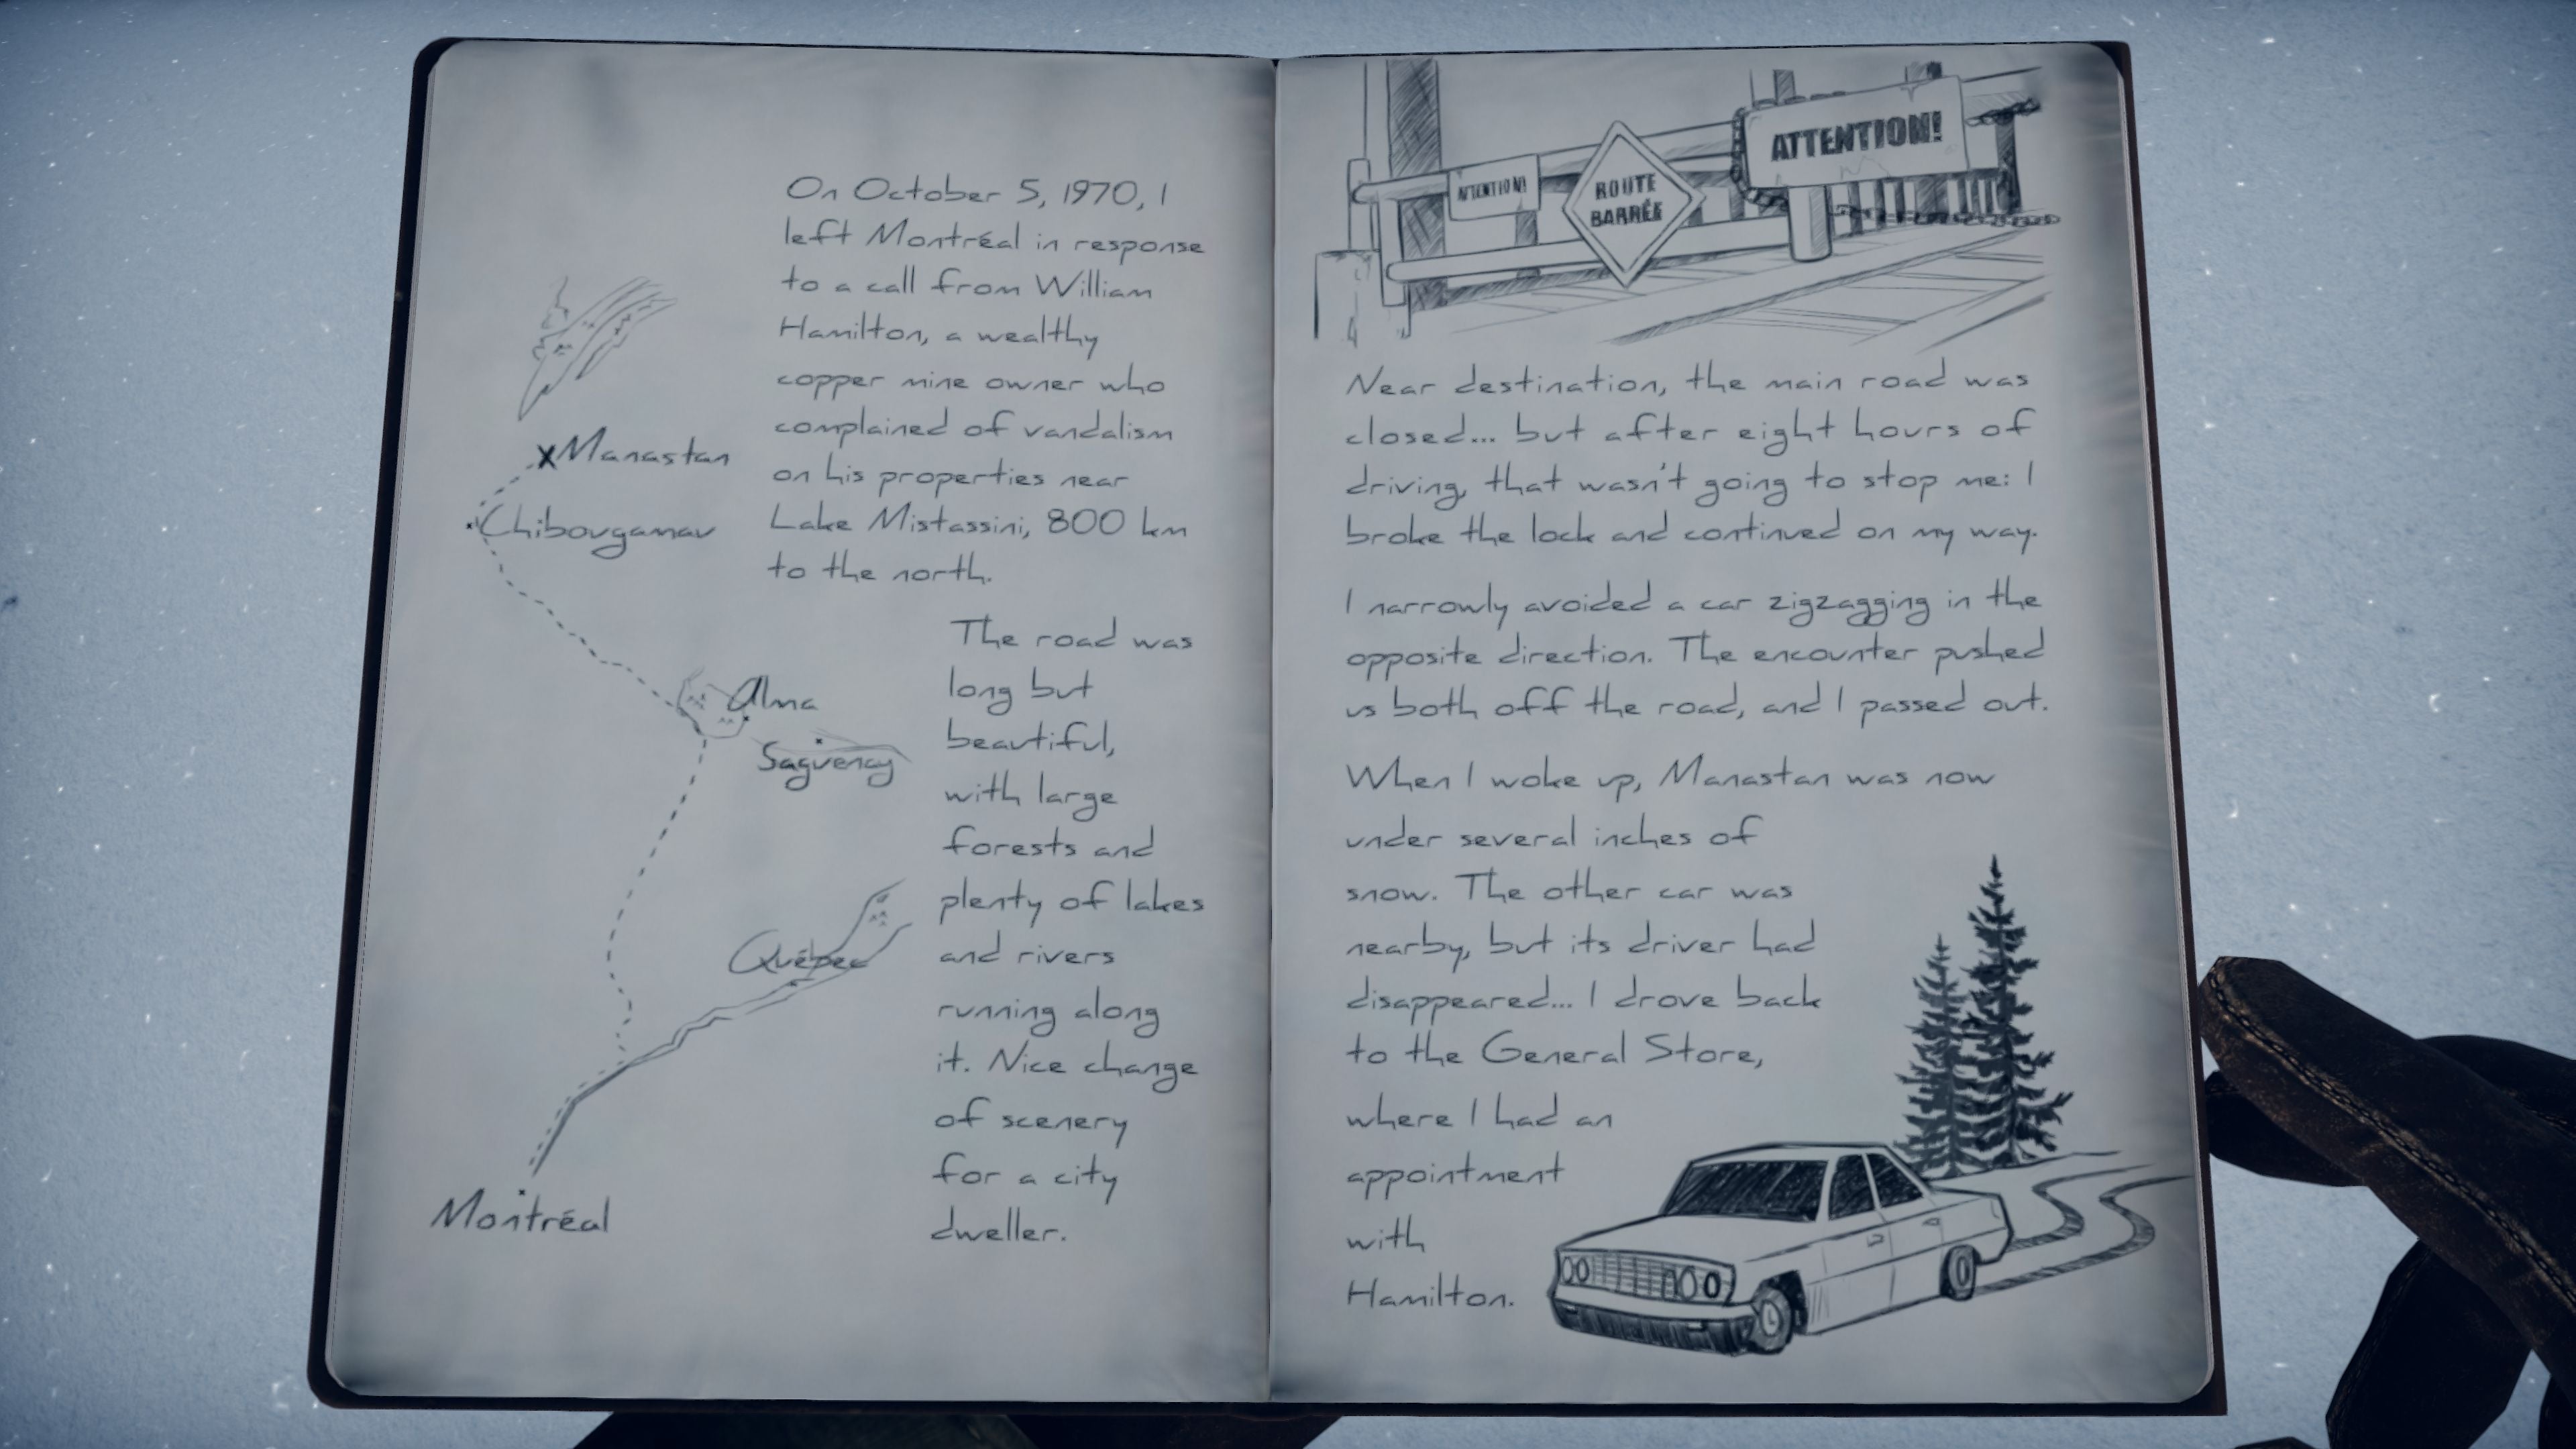 On October 5, 1970, I
left Montréal in response
to a call from William
Hamilton, a wealthy
copper mine owner who
complained of vandalism
on his properties near
Lake Mistassini, 800 km
to the north.
The road was
long but
beautiful,
with large
forests and
plenty of lakes
and rivers
running along
it. Nice change
of scenery
for a city
dweller.
Manastan
Chibougamau
Alma
Saguenay
Québec
Montréal
ATTENTION!
ROUTE
BARRÉE
ATTENTION!
Near destination, the main road was
closed... but after eight hours of
driving, that wasn't going to stop me: I
broke the lock and continued on my way.
I narrowly avoided a car zigzagging in the
opposite direction. The encounter pushed
us both off the road, and I passed out.
When I woke up, Manastan was now
under several inches of
snow. The other car was
nearby, but its driver had
disappeared... I drove back
to the General Store,
where I had an
appointment
with
Hamilton.